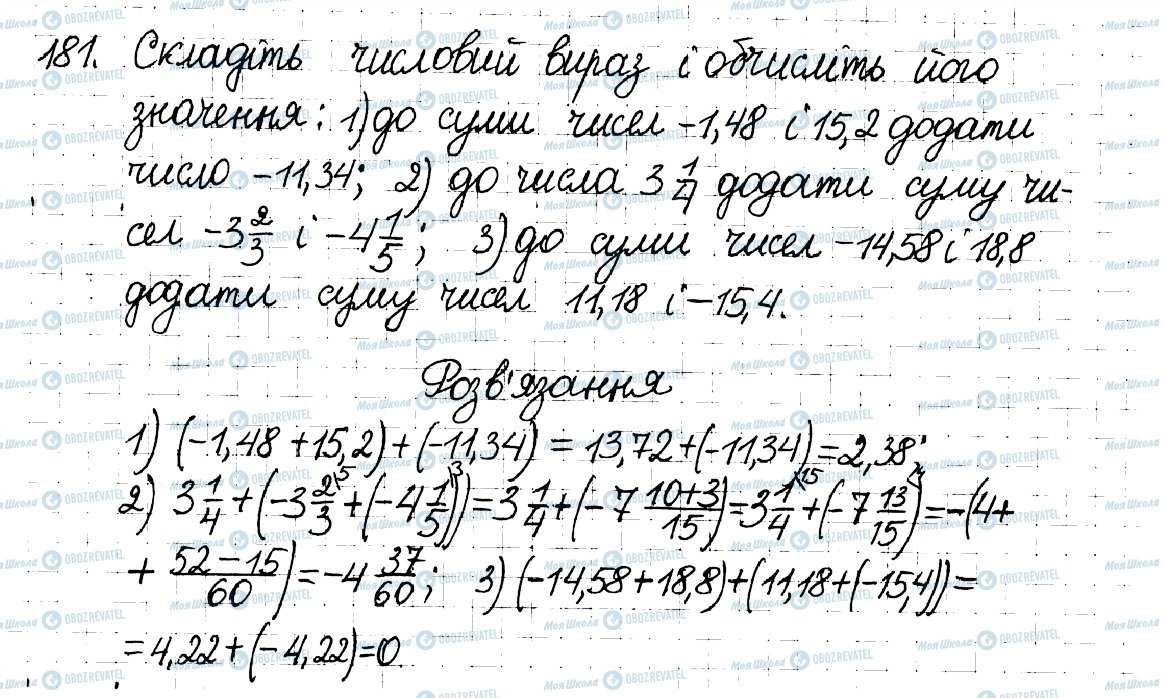 181. Складіть числовий вираз і обчисліть його
значення: 1) до суми чисел -1,48 і 15,2 додати
число -11,34; 2) до числа 3 1/4 додати суму чи-
сел -3 2/3 і -4 1/5; 3) до суми чисел -14,58 і 18,8
додати суму чисел 11,18 і -15,4.
Розв'язання
1) (-1,48 + 15,2) + (-11,34) = 13,72 + (-11,34) = 2,38;
2) 3 1/4 + (-3 2/3 \5 + (-4 1/5 \3)) = 3 1/4 + (-7 (10+3)/15) = 3 1/4 \15 + (-7 13/15 \4) = -(4+
+ (52-15)/60) = -4 37/60; 3) (-14,58 + 18,8) + (11,18 + (-15,4)) =
= 4,22 + (-4,22) = 0